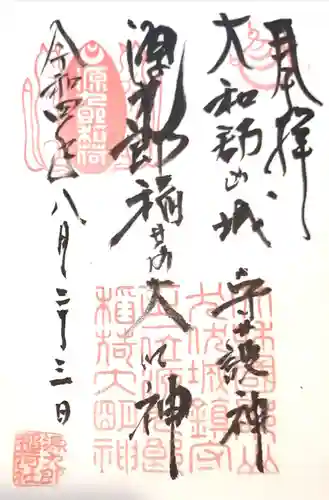 奉拝
大和郡山城
守護神
源九郎稲荷大明神
令和四年八月二十三日
源九郎稲荷
大和国郡山
九郎
稲荷大明神
源九郎
稲荷社